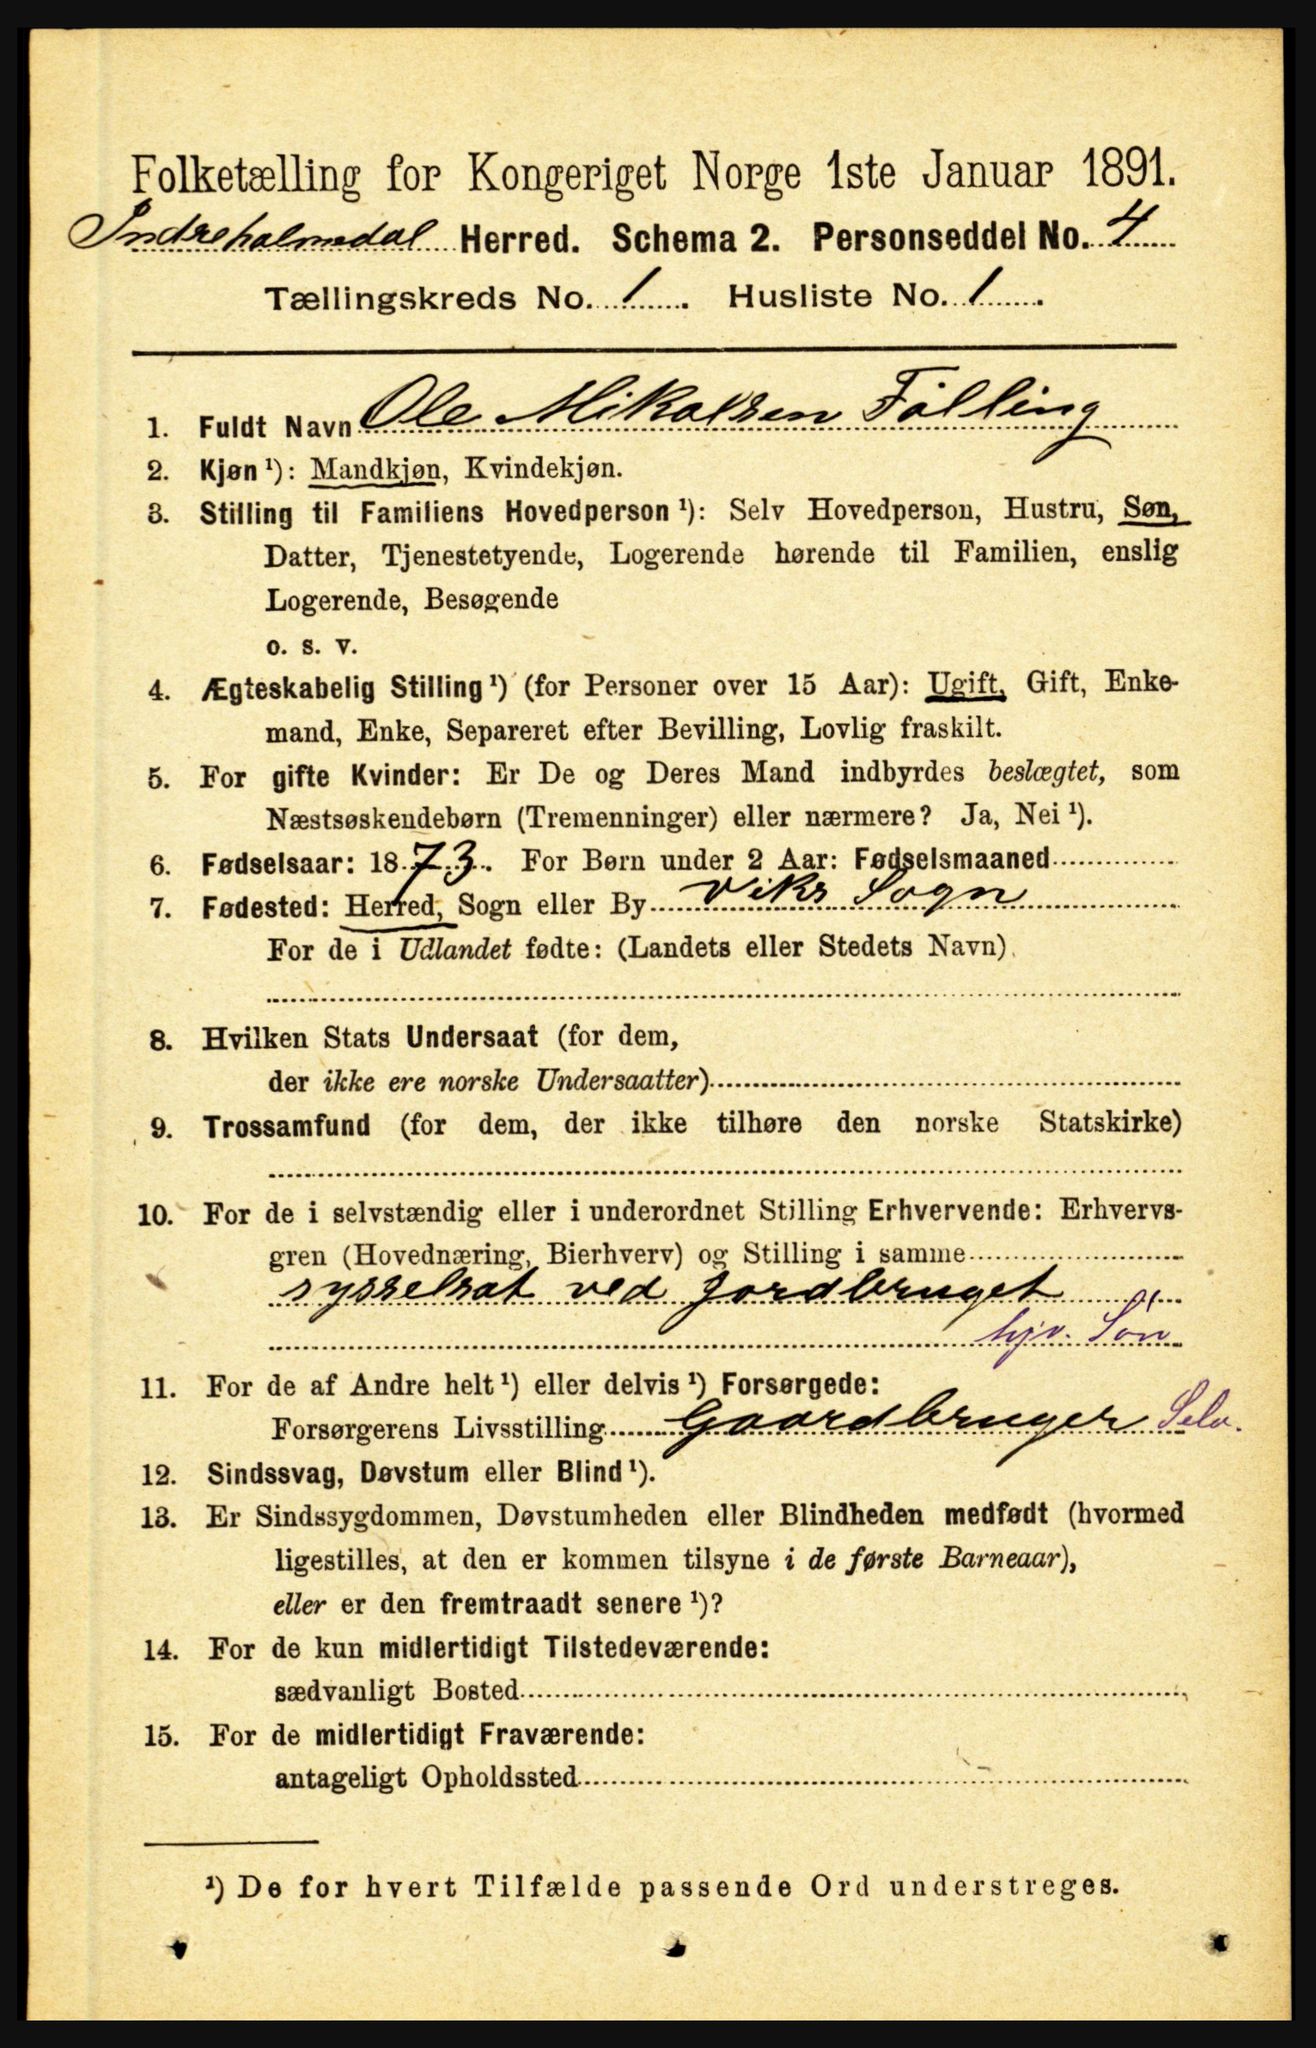 Folketælling for Kongeriget Norge 1ste Januar 1891.
Indreholmedal Herred. Schema 2. Personseddel No. 4
Tællingskreds No. 1. Husliste No. 1.
1. Fuldt Navn Ole Mikalsen Fölling
2. Kjøn ¹): Mandkjøn, Kvindekjøn.
3. Stilling til Familiens Hovedperson ¹): Selv Hovedperson, Hustru, Søn,
Datter, Tjenestetyende, Logerende hørende til Familien, enslig
Logerende, Besøgende
o. s. v.
4. Ægteskabelig Stilling ¹) (for Personer over 15 Aar): Ugift, Gift, Enke-
mand, Enke, Separeret efter Bevilling, Lovlig fraskilt.
5. For gifte Kvinder: Er De og Deres Mand indbyrdes beslægtet, som
Næstsøskendebørn (Tremenninger) eller nærmere? Ja, Nei ¹).
6. Fødselsaar: 1873. For Børn under 2 Aar: Fødselsmaaned
7. Fødested: Herred, Sogn eller By Viks Sogn
For de i Udlandet fødte: (Landets eller Stedets Navn)
8. Hvilken Stats Undersaat (for dem,
der ikke ere norske Undersaatter)
9. Trossamfund (for dem, der ikke tilhøre den norske Statskirke)
10. For de i selvstændig eller i underordnet Stilling Erhvervende: Erhvervs-
gren (Hovednæring, Bierhverv) og Stilling i samme
sysselsat ved jordbruget
hjv. Sön
11. For de af Andre helt ¹) eller delvis ¹) Forsørgede:
Forsørgerens Livsstilling Gaardbruger Selv.
12. Sindssvag, Døvstum eller Blind ¹).
13. Er Sindssygdommen, Døvstumheden eller Blindheden medfødt (hvormed
ligestilles, at den er kommen tilsyne i de første Barneaar),
eller er den fremtraadt senere ¹)?
14. For de kun midlertidigt Tilstedeværende:
sædvanligt Bosted
15. For de midlertidigt Fraværende:
antageligt Opholdssted
¹) De for hvert Tilfælde passende Ord understreges.